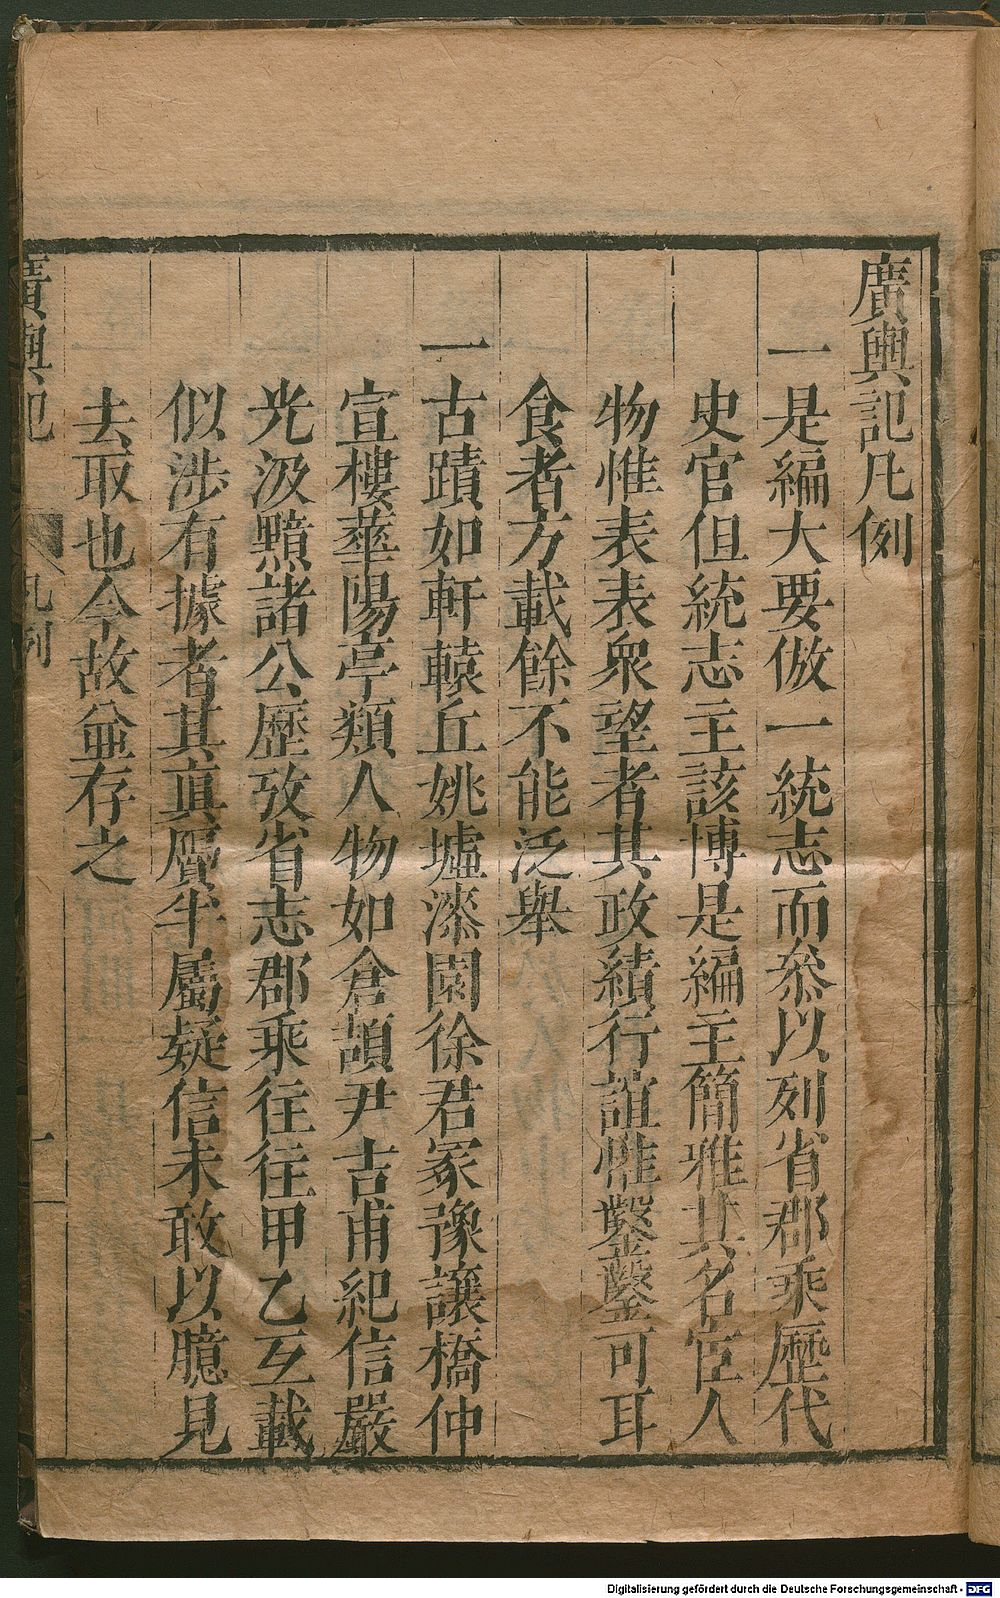 廣輿記凡例
一是編大要倣一統志而叅以列省郡乘歷代
史官但統志主該博是編主簡雅其名宦人
物惟表表衆望者其政績行誼惟鑿鑿可耳
食者方載餘不能泛舉
一古蹟如軒轅丘姚墟漆園徐君冢豫讓橋仲
宣樓華陽亭類人物如倉頡尹吉甫紀信嚴
光汲黯諸公歷攷省志郡乘往往甲乙互載
似涉有據者其真贗半屬疑信未敢以臆見
去取也今故並存之
廣輿記 凡例 一
Digitalisierung gefördert durch die Deutsche Forschungsgemeinschaft - DFG